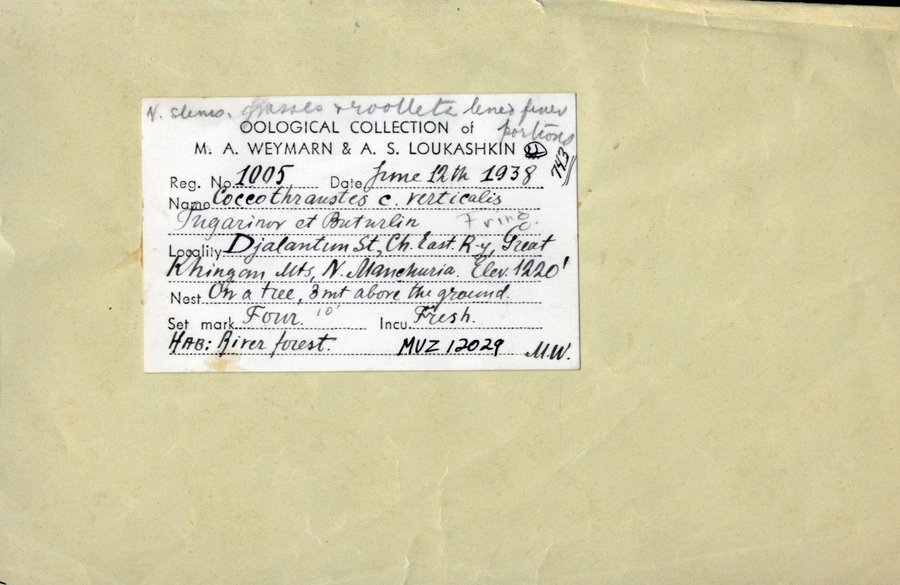 N. stems, grasses & rootlets lined finer portions
OOLOGICAL COLLECTION of
M. A. WEYMARN & A. S. LOUKASHKIN
743
Reg. No. 1005 Date June 12th 1938
Name Coccothraustes c. verticalis
Tugarinov et Buturlin Fring.
Locality Djalantun St, Ch. East. R-y, Great
Khingan Mts, N. Manchuria. Elev. 1220'
Nest On a tree, 3mt above the ground.
Set mark Four. 10' Incu. Fresh.
HAB: River forest. MVZ 12029 M.W.